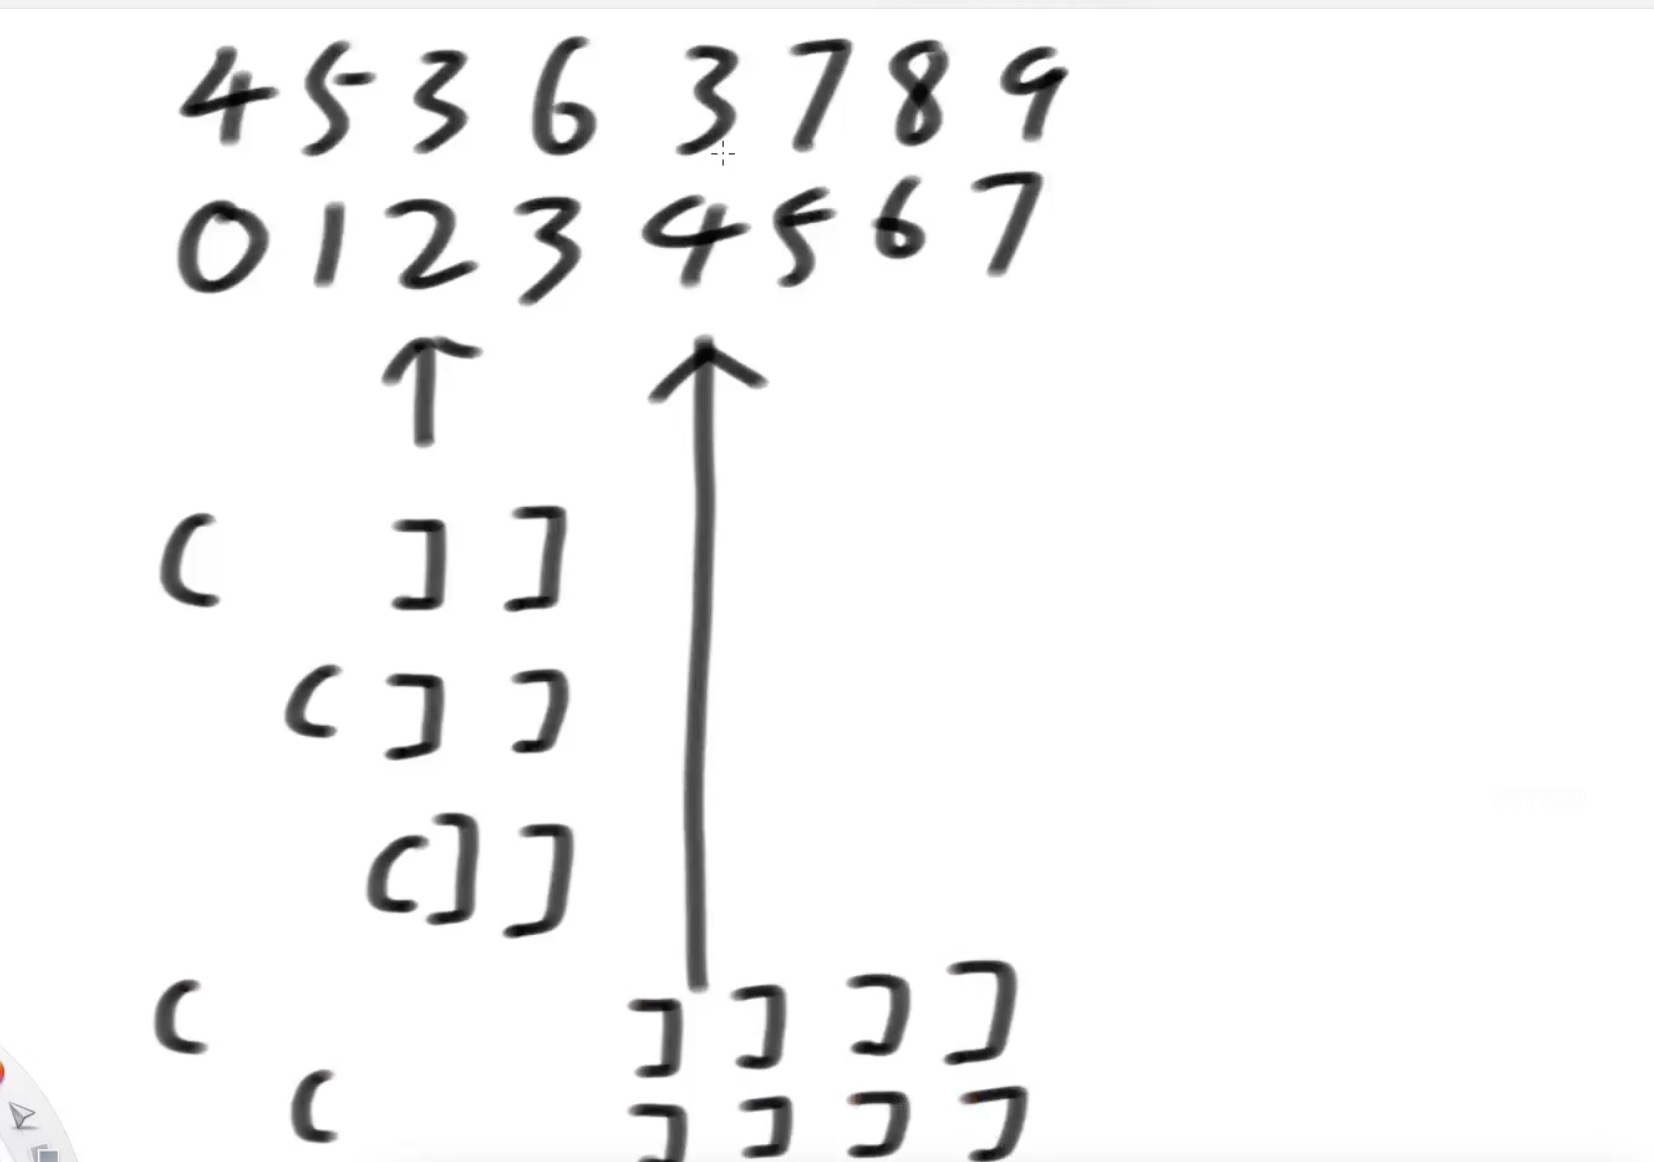 4 5 3 6 3 7 8 9
0 1 2 3 4 5 6 7
( ] ]
( ] ]
( ] ]
( ] ] ] ]
( ] ] ] ]